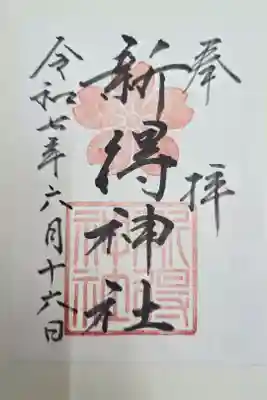 奉拝
新得神社
令和七年六月十六日
新得神社